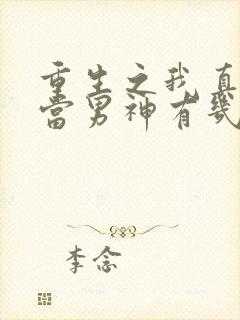 重生之我真
当男神有几
李念